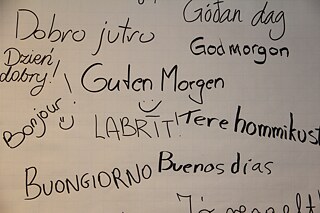 Góðan dag
Dobro jutro
God morgon
Dzień
dobry!
Guten Morgen
Bonjour
LABRĪT!
Tere hommikust
BUONGIORNO
Buenos días